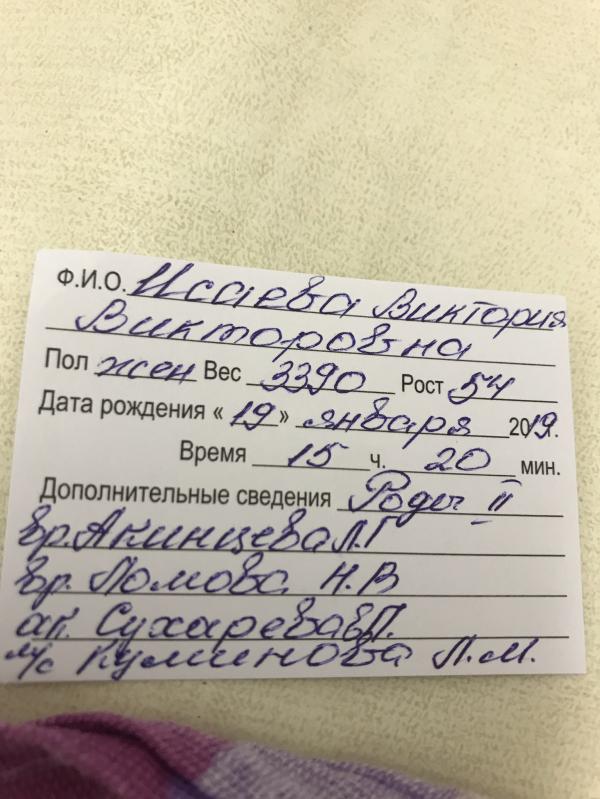 Ф.И.О. Исаева Виктория
Викторовна
Пол жен Вес 3390 Рост 54
Дата рождения « 19 » января 2019г.
Время 15 ч. 20 мин.
Дополнительные сведения Роды II
вр. Акинцева Л.Г
вр. Ломова Н.В
ак. Сухарева
м/с Куминова Л.М.